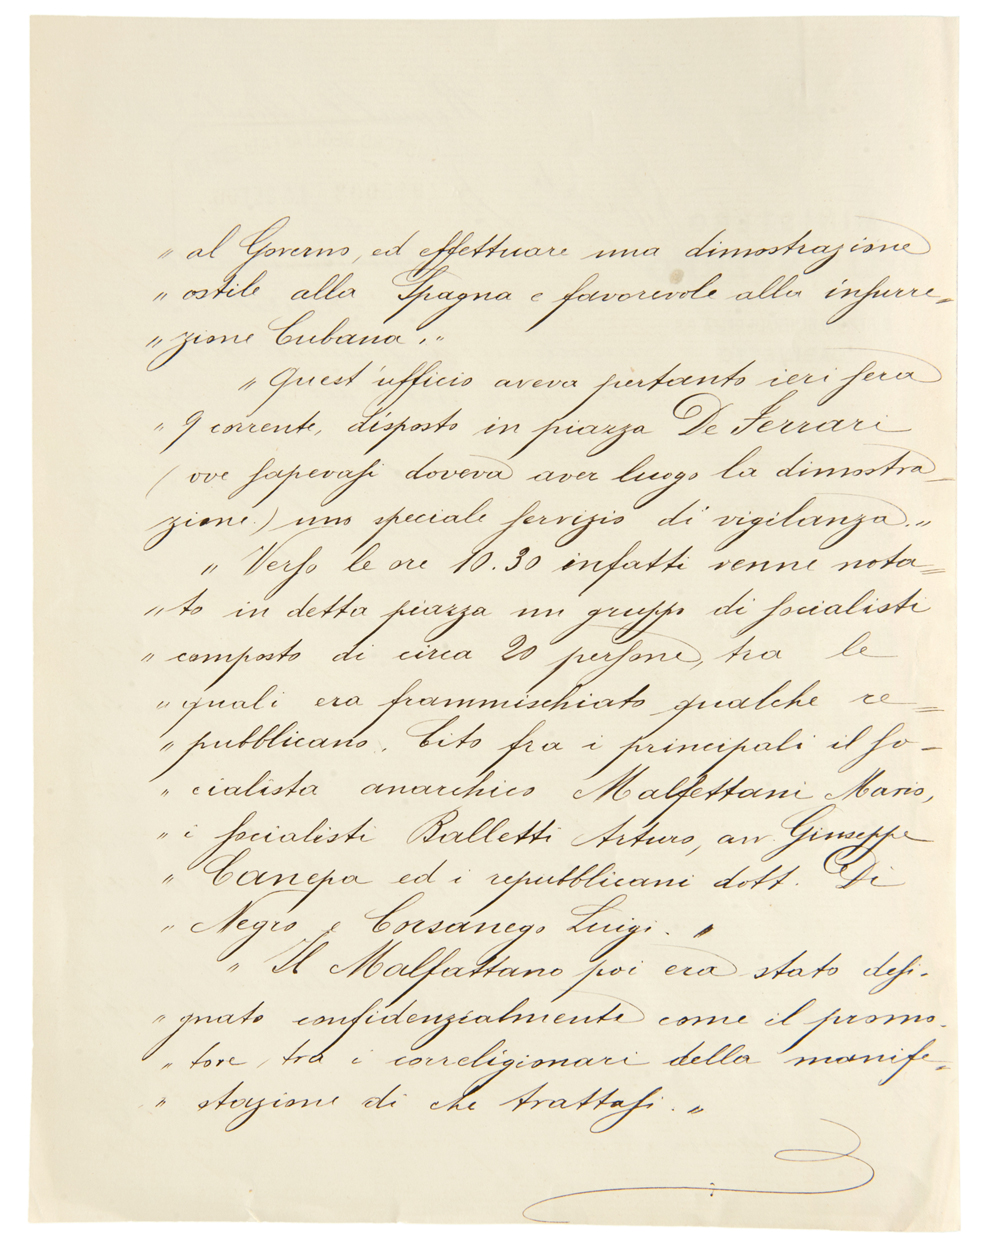 „ al Governo, ed effettuare una dimostrazione
„ ostile alla Spagna e favorevole alla insurre„
„ zione Cubana.„
„ Quest'ufficio aveva pertanto ieri sera
„ 9 corrente, disposto in piazza De Ferrari
( ove sapevasi doveva aver luogo la dimostra_
zione.) uno speciale servizio di vigilanza.„
„ Verso le ore 10.30 infatti venne nota=
„ to in detta piazza un gruppo di socialisti
„ composto di circa 20 persone, tra le
„ quali era frammischiato qualche re=
„ pubblicano. Cito fra i principali il so-
„ cialista anarchico Malfettani Mario,
„ i socialisti Balletti Arturo, avv. Giuseppe
„ Canepa ed i repubblicani dott. Di
„ Negro e Corsanego Luigi. „
„ Il Malfattano poi era stato desi-
„ gnato confidenzialmente come il promo-
„ tore, tra i correligionari della manife=
„ stazione di che trattasi. „